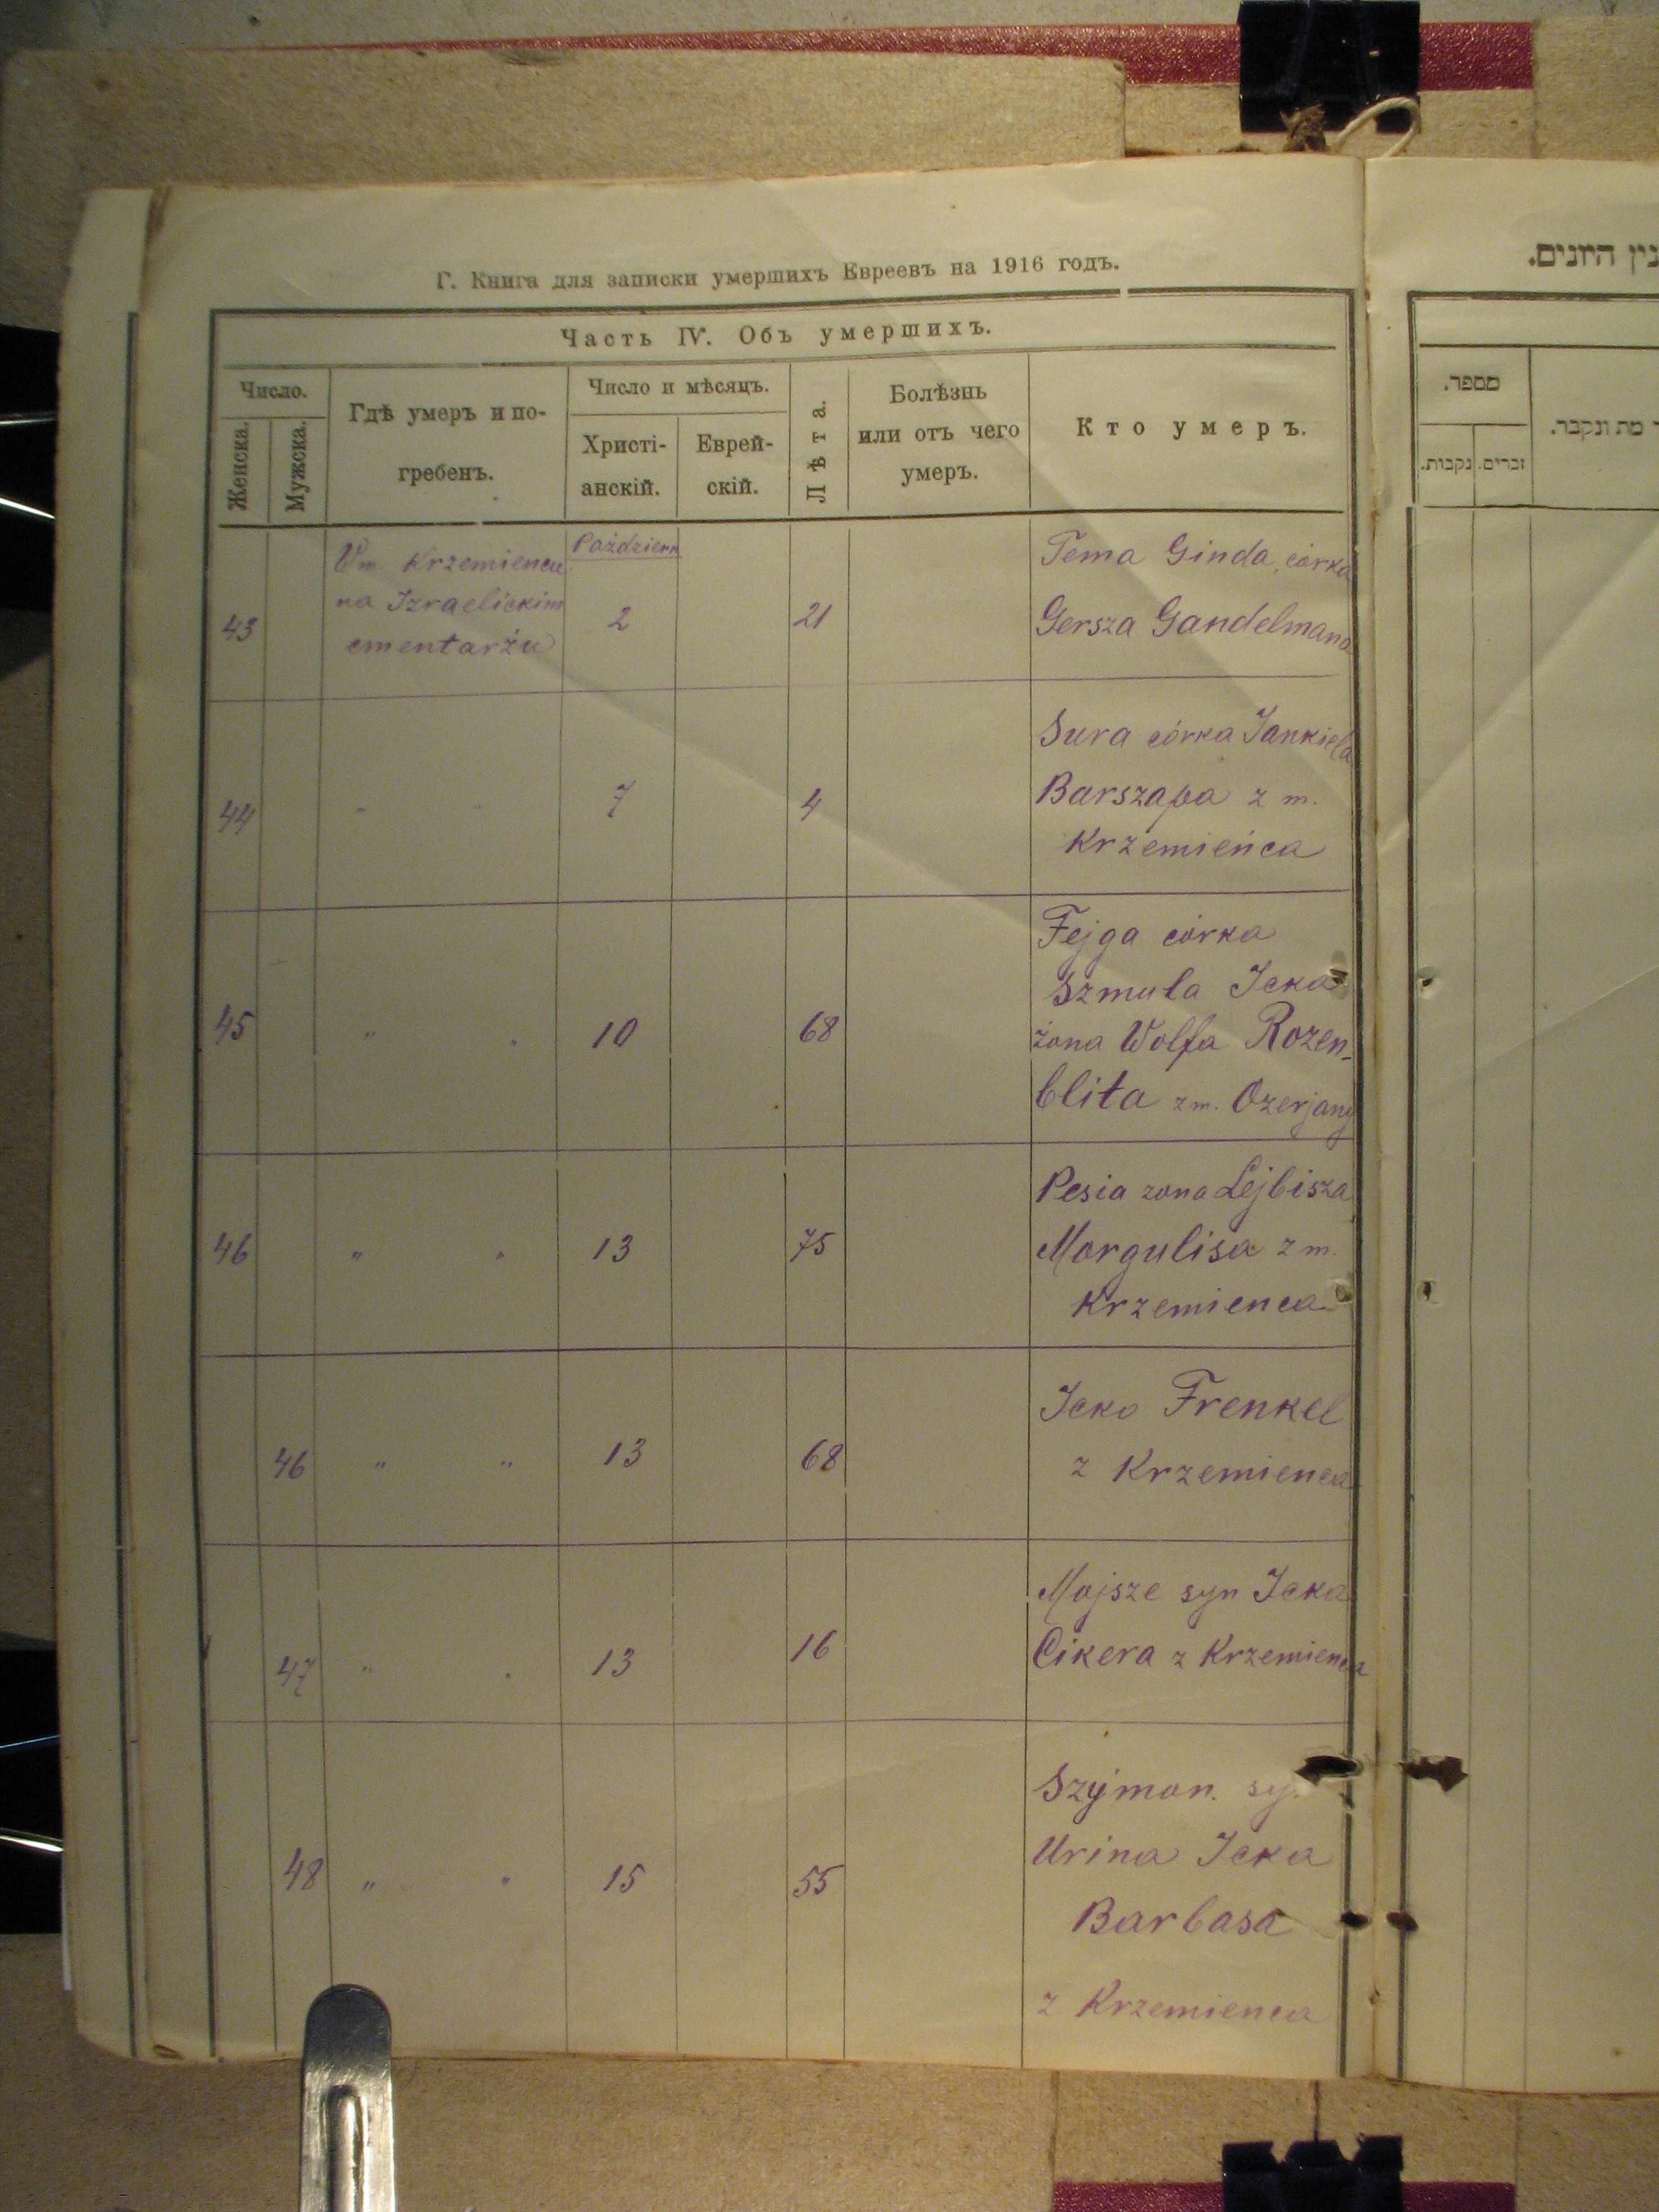 Г. Книга для записки умершихъ Евреевъ на 1916 годъ.
Часть IV. Объ умершихъ.
Число.
Женска.
Мужска.
Гдѣ умеръ и по-
гребенъ.
Число и мѣсяцъ.
Христі-
анскій.
Еврей-
скій.
Лѣта.
Болѣзнь
или отъ чего
умеръ.
Кто умеръ.
43
W m. Krzemiencu
na Izraelickim
cmentarżu
Październ
2
21
Tema Ginda, córka
Gersza Gandelmana
44
" "
7
4
Sura córka Jankiela
Barszapa z m.
Krzemieńca
45
" "
10
68
Fejga córka
Szmula Icka
żona Wolfa Rozen-
blita z m. Ozerjany
46
" "
13
75
Pesia zona Lejbisza
Morgulisa z m.
Krzemienca
46
" "
13
68
Icko Frenkel
z Krzemienca
47
" "
13
16
Mojsze syn Icka
Cikera z Krzemienca
48
" "
15
55
Szymon.
Urina Icka
Barbasa
z Krzemienca
נין היונים.
מספר.
זכרים.
נקבות.
מת ונקבר.